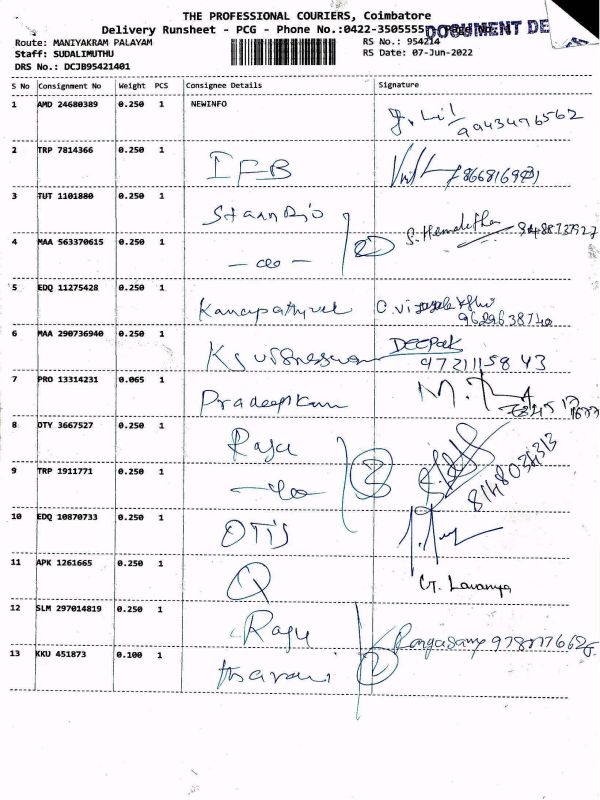 THE PROFESSIONAL COURIERS, Coimbatore
Delivery Runsheet - PCG - Phone No.:0422-3505555
DOCUMENT DE
Route: MANIYAKRAM PALAYAM RS No.: 954214
Staff: SUDALIMUTHU RS Date: 07-Jun-2022
DRS No.: DCJB95421401
S No Consignment No Weight PCS Consignee Details Signature
1 AMD 24680389 0.250 1 NEWINFO
9943476562
2 TRP 7814366 0.250 1
IFB
3 TUT 1101880 0.250 1
S. Hemalatha
4 MAA 563370615 0.250 1
2
5 EDQ 11275428 0.250 1
9629638740
6 MAA 290736940 0.250 1
DEEPAK
9721115843
7 PRO 13314231 0.065 1
Pradeepkam
8 DTY 3667527 0.250 1
Raju
9 TRP 1911771 0.250 1
8148034313
10 EDQ 10870733 0.250 1
OTIS
11 APK 1261665 0.250 1
G. Lavanya
12 SLM 297014819 0.250 1
Raju Rangasamy
13 KKU 451873 0.100 1
2